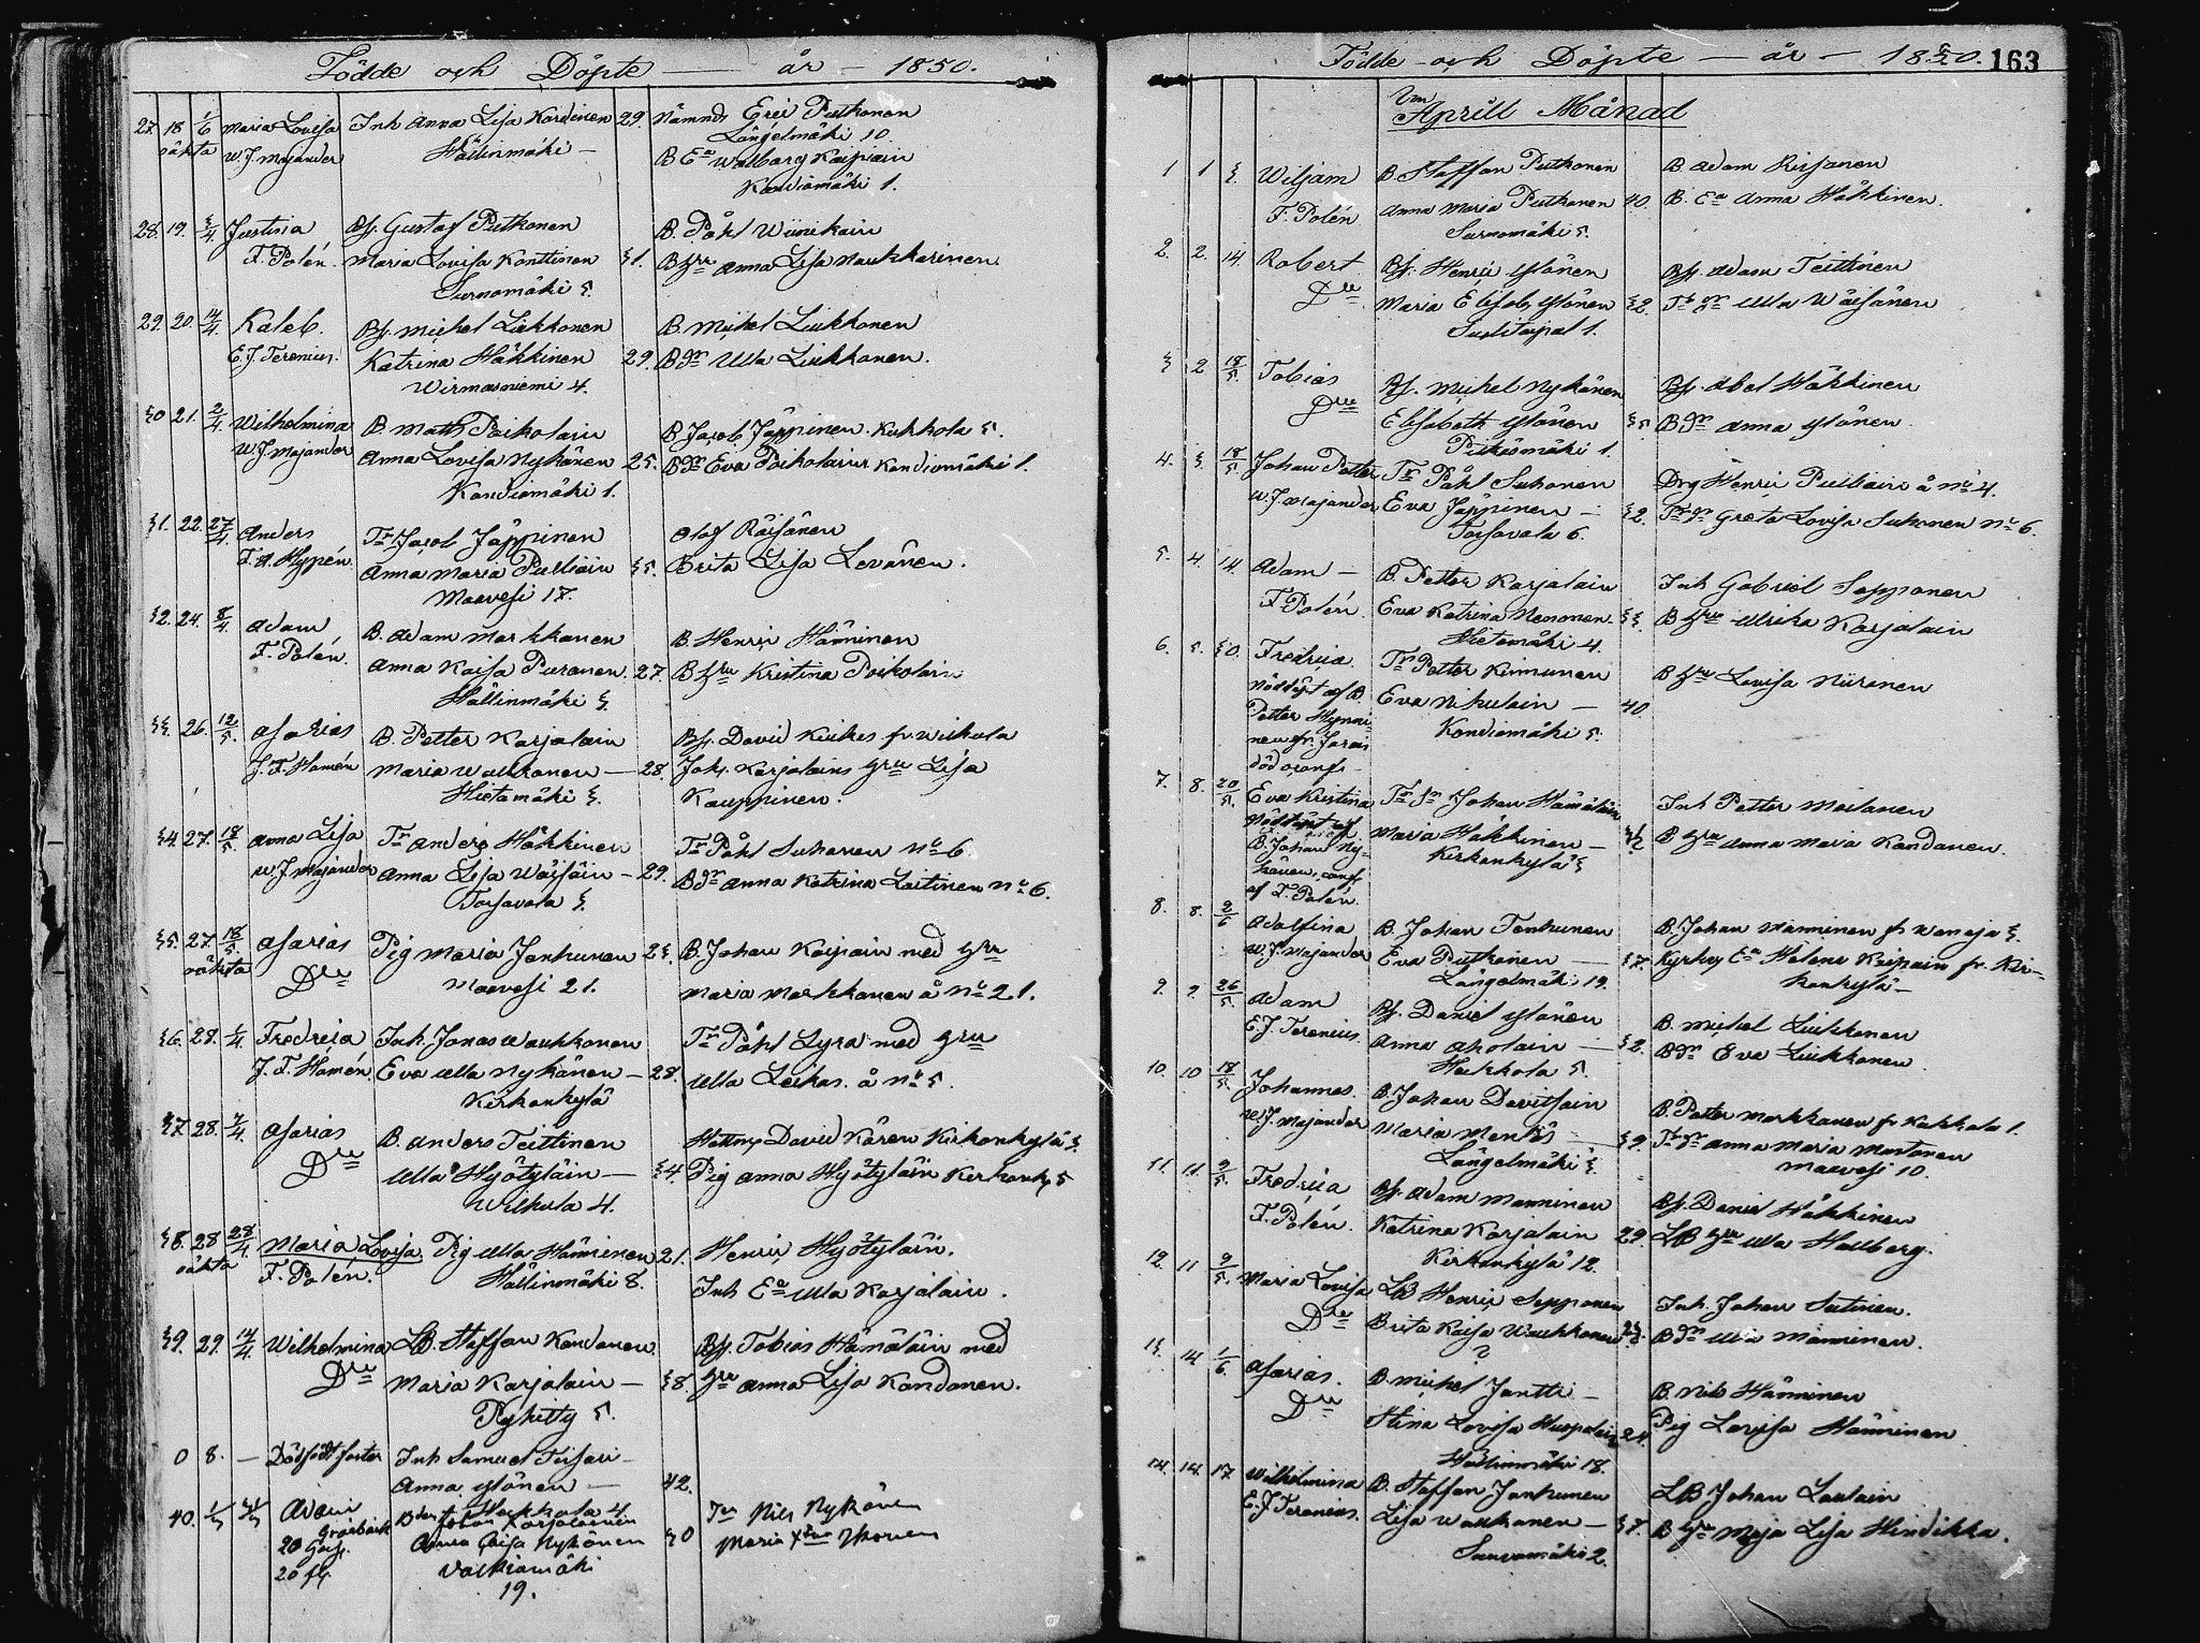 Födde och Döpte — år — 1850.
27. 18 1/6 Maria Lovisa Inh Anna Lisa Kardinen 29. Nämnds Eric Putkonen
oäkta W. J. Majander Hällinmäki — Längelmäki 10.
B Ea Walborg Kaipiain
Kondiamäki 1.
28. 19. 3/4. Justina Bs. Gustaf Putkonen B. Påhl Wiinikain
F. Polén. Maria Lovisa Konttinen 31. B hru Anna Lisa Naukkarinen
Surnomäki 5.
29. 20. 14/4. Kaleb. Bs. Michel Liukkonen B. Michel Liukkonen
E. J. Terenius. Katrina Häkkinen 29. B dr Ulla Liukkonen.
Wirmasniemi 4.
30 21. 2/4. Wilhelmina B. Matts Poikolain B. Jacob Jäppinen. Kukkola 5.
W. J Majander Anna Lovisa Nykänen 25. B dr Eva Poikolain Kondiamäki 1.
Kondiamäki 1.
31. 22. 27/4. Anders Tr. Jacob Jäppinen Olof Räisänen
F. A. Hyppén. Anna Maria Pulliain 35. Brita Lisa Levänen.
Maavesi 17.
32. 24. 8/4. Adam B. Adam Markkanen B. Henric Hänninen
F. Polén. Anna Kaisa Puranen. 27. B hru Kristina Poikolain
Hällinmäki 3.
33. 26. 12/5. Asarias B. Petter Karjalain Bs. David Kiukas fr. Wilkula
J. F. Hamén Maria Waukkonen — 28. Joh. Karjalains hru Lisa
Hietamäki 3. Kauppinen.
34. 27. 18/5. Anna Lisa Tr Anders Häkkinen Tr Påhl Suhonen No 6.
W J Majander Anna Lisa Wäisäin — 29. B dr Anna Katrina Laitinen No 6.
Torsavala 3.
35. 27. 18/5. Asarias Pig Maria Janhunen 23. B. Johan Kaipain med hru
oäkta Dre Maavesi 21. Maria Markkanen å No 21.
36. 28. 1/4. Fredrica Inh. Jonas Waukkonen Tr Påhl Lyra med hru
J. F. Hamén. Eva Ulla Nykänen — 28. Ulla Leikas. å No 5.
Kirkonkylä
37. 28. 7/4. Asarias B. Anders Teittinen David Kåren Kirkonkylä 3.
Dre Ulla Hyötyläin — 34. Pig Anna Hyötyläin Kirkonky 5
Wilkula 4.
38. 28 28/4 Maria Lovisa. Pig Ulla Hänninen 21. Henric Hyötyläin.
oäkta F. Polén. Hällinmäki 8. Inh Ea Ulla Karjalain.
39. 29. 14/4. Wilhelmina LB. Staffan Kandanen. Bs. Tobias Hämäläin med
Dre Maria Karjalain — 38. hru Anna Lisa Kandanen.
Pykitty 5.
0 8. — Dödfödt foster Inh Samuel —
Anna Ylönen — 42.
Häkkola 4.
40. Adam Johan Karjalainen Tr Nils Nykänen
20 Anna Caisa Nykönen 30 Maria
20 Valkiamäki
19.
Födde och Döpte — år — 1850. 163
Um
Aprill Månad
1 1 3. Wiljam B. Staffan Putkonen B. Adam Kirjanen
F. Polén Anna Maria Putkonen 40. B. Ea Anna Häkkinen.
Surnomäki 5.
2. 2. 14. Robert Bs. Henric Ylönen Bs. Adam Teittinen
Dre Maria Elisab. Ylönen 32. Tr dr Ulla Wäisänen
Suolitaipal 1.
3 2 18/5. Tobias Bs. Michel Nykänen Bs. Abel Häkkinen
Dre Elisabeth Ylönen 35 B dr Anna Ylönen.
Pitkäsmäki 1.
4. 3. 18/5 Johan Petter Tr Påhl Suhonen Drg Henric Pulliain å No 4.
W. J. Majander Eva Jäppinen — 32. Tr dr Greta Lovisa Suhonen No 6.
Torsavala 6.
5. 4. 14. Adam — B. Petter Karjalain Inh Gabriel Sopponen
F. Polén Eva Katrina Nenonen. 33. B hru Ulrika Karjalain
Hietamäki 4.
6. 5. 30. Fredrica. Tr Petter Kinnunen B hru Lovisa Niiranen
Nöddöpt af B. Eva Nikulain — 40.
Petter Hynni- Kondiamäki 5.
nen fr. Joras
död
7. 8. 20/5. Eva Kristina Tr Sn Johan Hämäläin Inh Petter Moilanen
Nöddöpt af Maria Häkkinen — B hru Anna Maria Kandanen.
B. Johan Ny- Kirkonkylä 3
känen, conf
af F. Polén.
8. 8. 2/6 Adolfina B. Johan Tenhunen B. Johan Manninen fr Waneja 3.
W. J. Majander Eva Putkonen — 37. Kyrkoy Ea Helena Keipain fr. Kir-
Längelmäki 19. konkylä —
9. 9. 26/5. Adam Bs. Daniel Ylönen B. Michel Liukkonen
E. J. Terenius. Anna Aholain — 32. B dr Eva Liukkonen.
Häkkola 5.
10. 10 18/5. Johannes. B. Johan Davitsain B. Petter Markkanen fr Kukkola 1.
W. J. Majander Maria — 39. Tr dr Anna Maria Montonen
Längelmäki 3. Maavesi 10.
11. 11. 9/5. Fredrica Bs. Adam Manninen Bs. Daniel Häkkinen
F. Polén. Katrina Karjalain 29. LB hru Ulla Hallberg.
Kirkonkylä 12.
12. 11 9/5. Maria Lovisa LB Henric Sopponen Inh. Johan Sutinen.
Dre Brita Kaisa Waukkonen B dr Ulla Manninen.
?
13. 14 1/6. Asarias. B. Michel Jantti — B. Nils Hänninen
Dre Stina Lovisa 24. Pig Lovisa Hänninen
Hällinmäki 18.
14. 14. 17 Wilhelmina B. Staffan Janhunen LB Johan Laulain
E. J Terenius. Lisa Waukkonen — 37. B hru Maja Lisa Hindikka.
2.